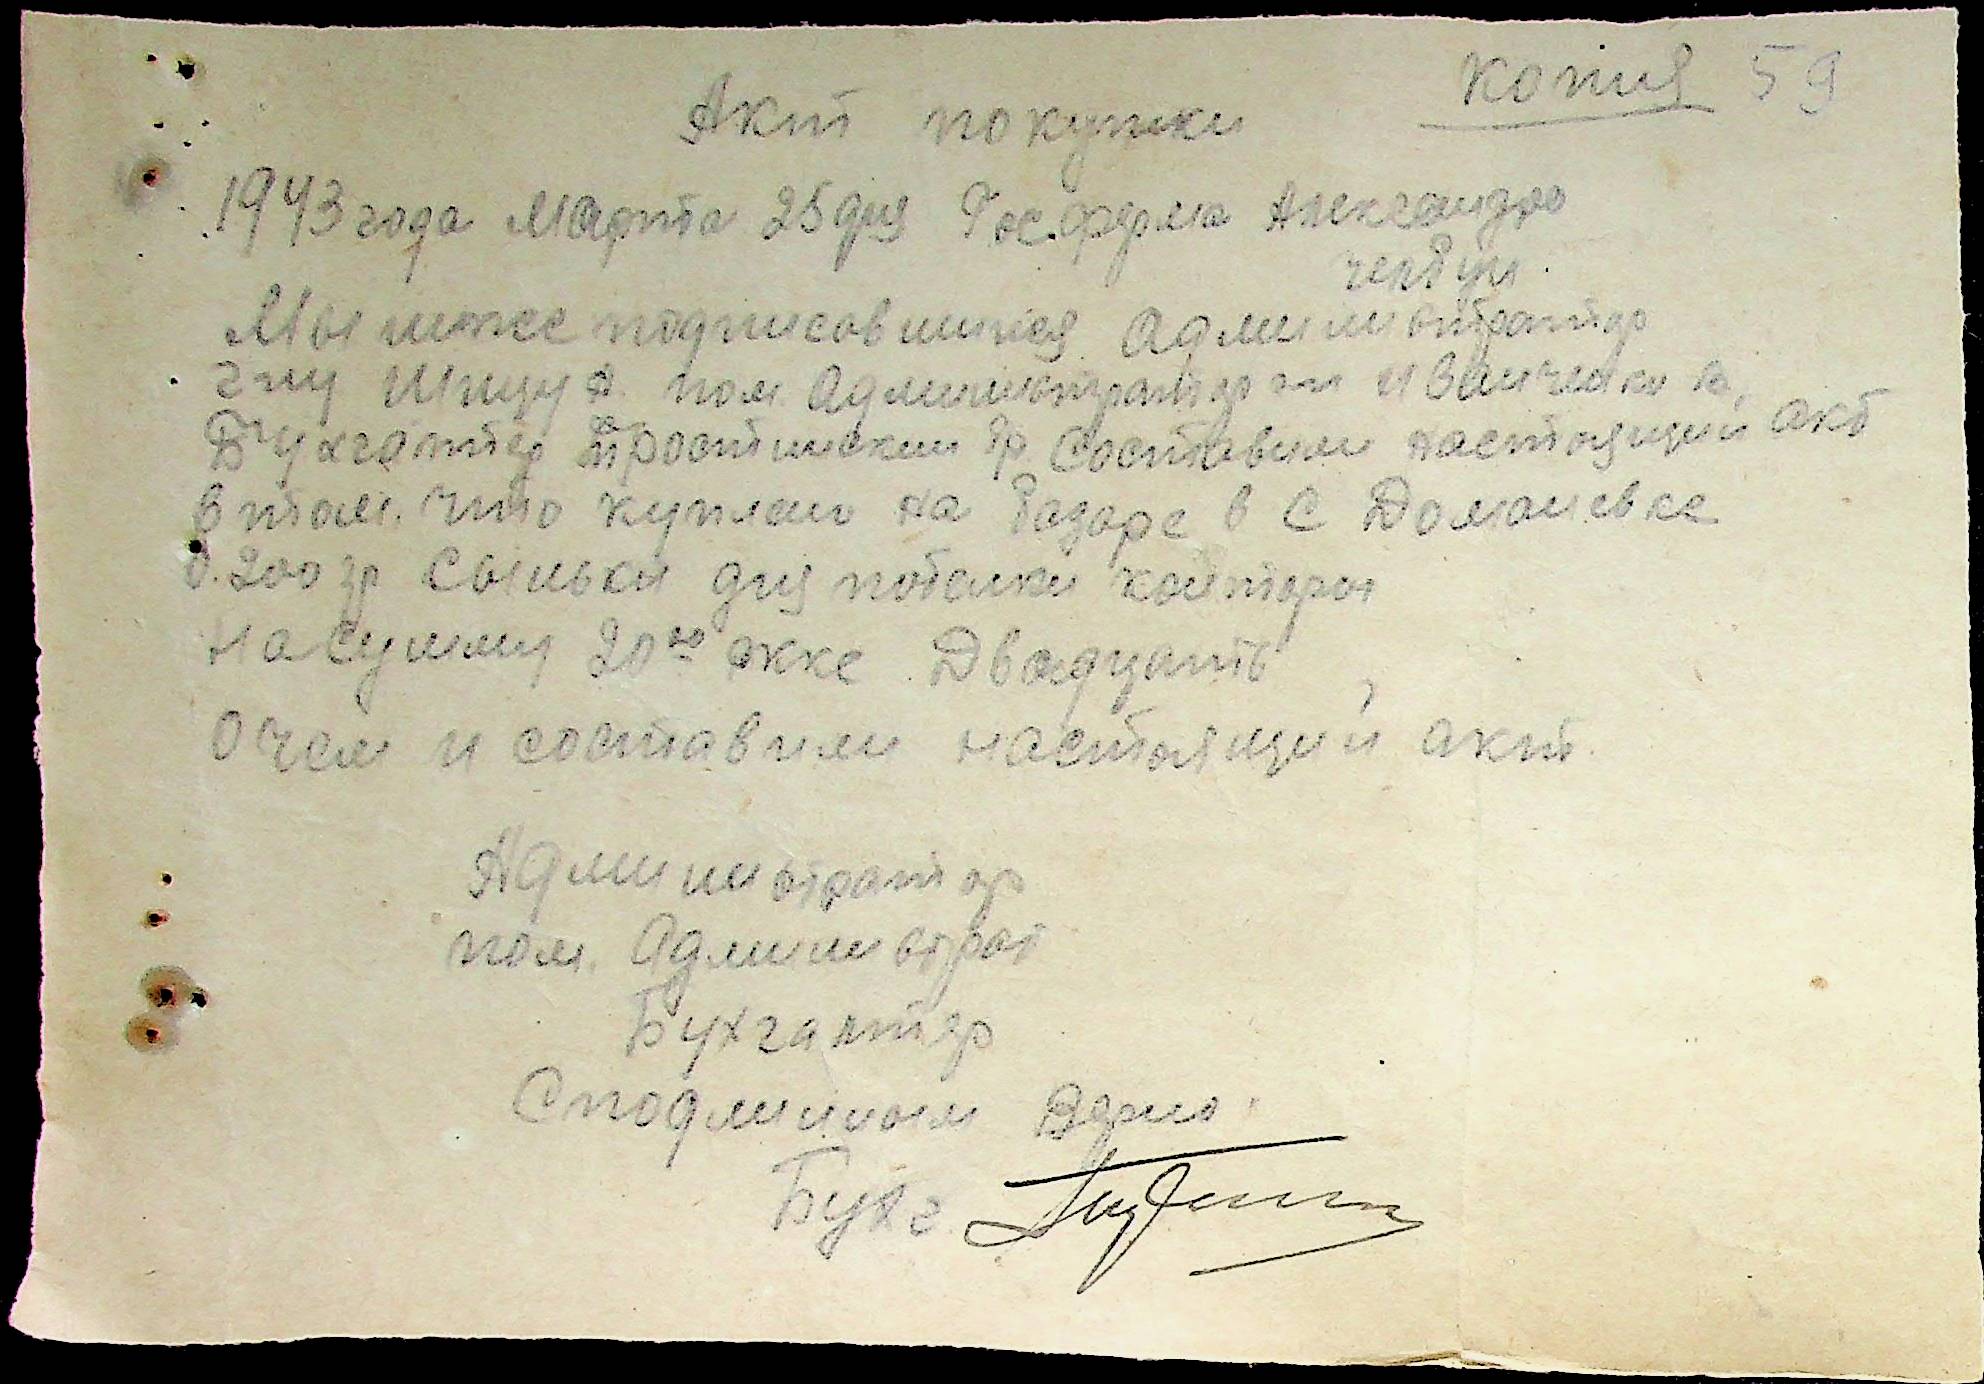 копия 59
Акт покупки
1943 года Марта 25 дня Госферма Александро
Мы ниже подписовшиеся Администратор
г-ну Шпуу А. пом. Администратор он и Заиченко
Бухгалтер Тростинский Гр. Составили настоящий акт
в том. что куплено на базаре в С Доманевке
0.200 гр Синьки для побелки конторы
На сумму 20 00 ркке Двадцать
О чем и составили настоящий акт.
Администратор
пом. Администрат
Бухгалтер
Сподлиным Верно.
Бухг